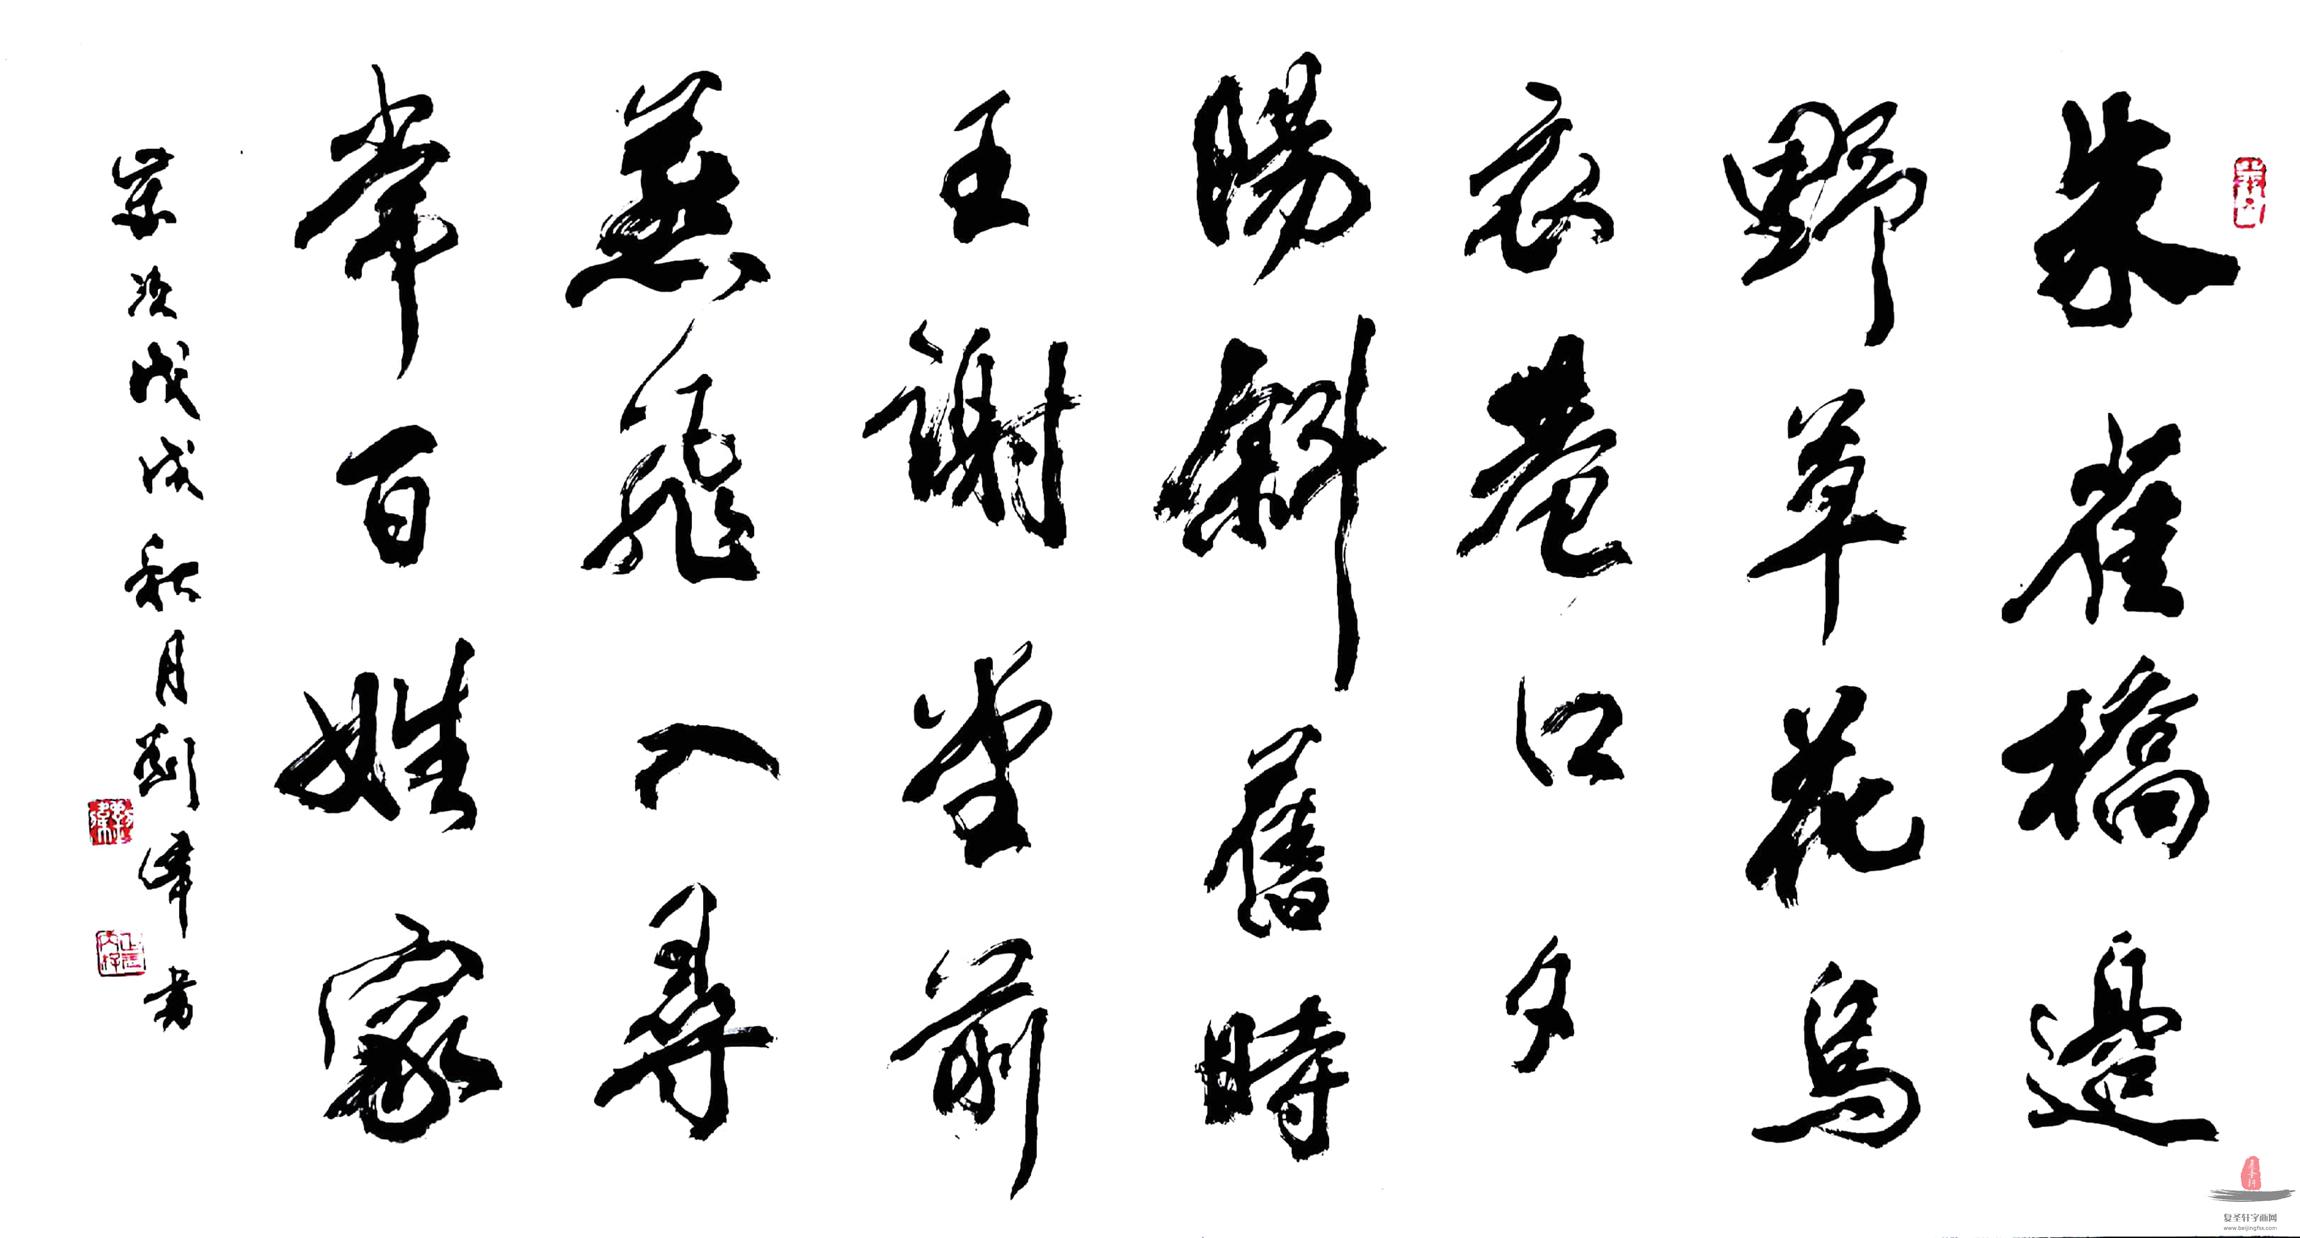 朱雀橋邊
野草花烏
衣巷口夕
陽斜舊時
王謝堂前
燕飛入尋
常百姓家
歲次戊戌秋月劉峰書
复圣轩字画网
www.beijingfsx.com